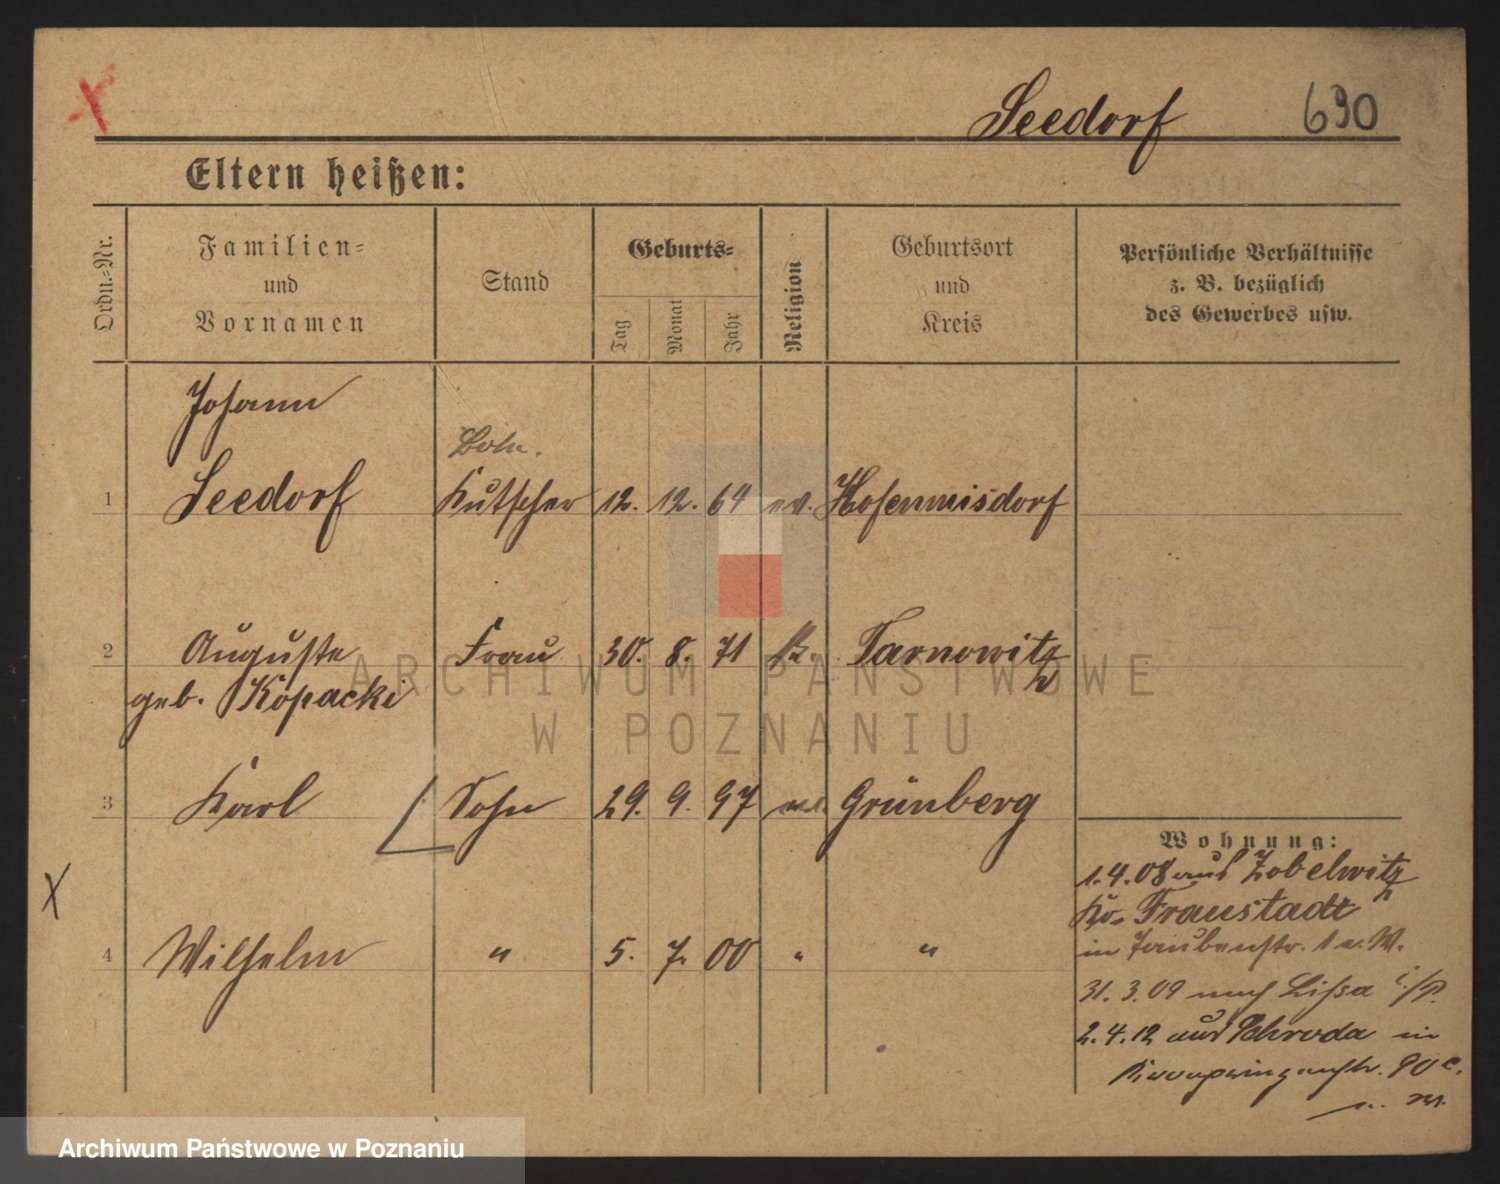 Seedorf 630
Eltern heißen:
Ordn.-Nr.
Familien-
und
Vornamen
Stand
Geburts-
Tag
Monat
Jahr
Religion
Geburtsort
und
Kreis
Persönliche Verhältnisse
z. B. bezüglich
des Gewerbes usw.
Johann
1 Seedorf Kutscher 12. 12. 64 ev. Hosenmisdorf
2 Auguste Frau 30. 8. 71 k. Tarnowitz
geb. Kopacki
3 Karl Sohn 29. 9. 97 ev. Grünberg
4 Wilhelm " 5. 7. 00 " "
Wohnung:
1.4.08 aus Zobelwitz
Kr. Fraustadt
in Taubenstr. 1 a. W.
31. 3. 09 nach Lissa i/P.
2.4.12 aus Schroda in
Kronprinzenstr. 90 c.
ARCHIWUM PAŃSTWOWE
W POZNANIU
Archiwum Państwowe w Poznaniu